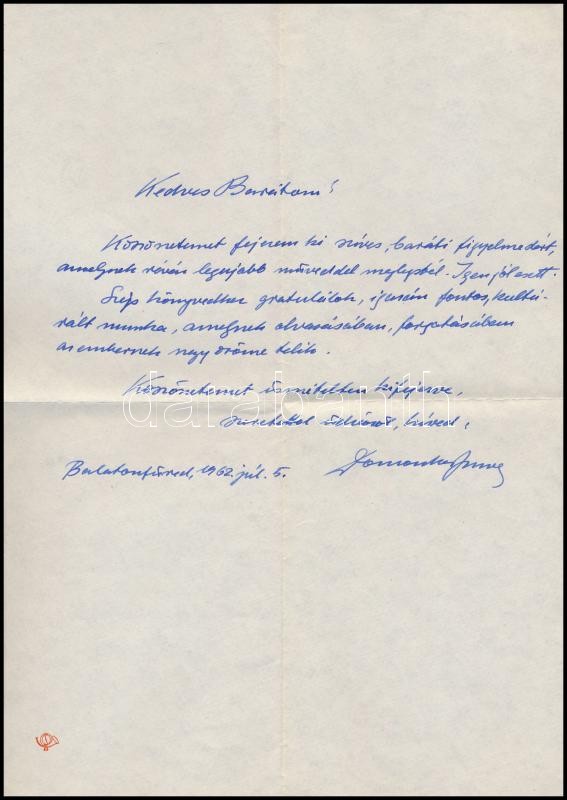 Kedves Barátom!
Köszönetemet fejezem ki szíves, baráti figyelmedért,
amelynek révén legújabb műveddel megleptél. Igen jól esett.
Szép könyvedhez gratulálok, igazán fontos, kultú-
rált munka, amelynek olvasásában, forgatásában
az embernek nagy öröme telik.
Köszönetemet ismételten kifejezve,
szeretettel üdvözöl, híved:
Balatonfüred, 1962. júl. 5.
darabanth